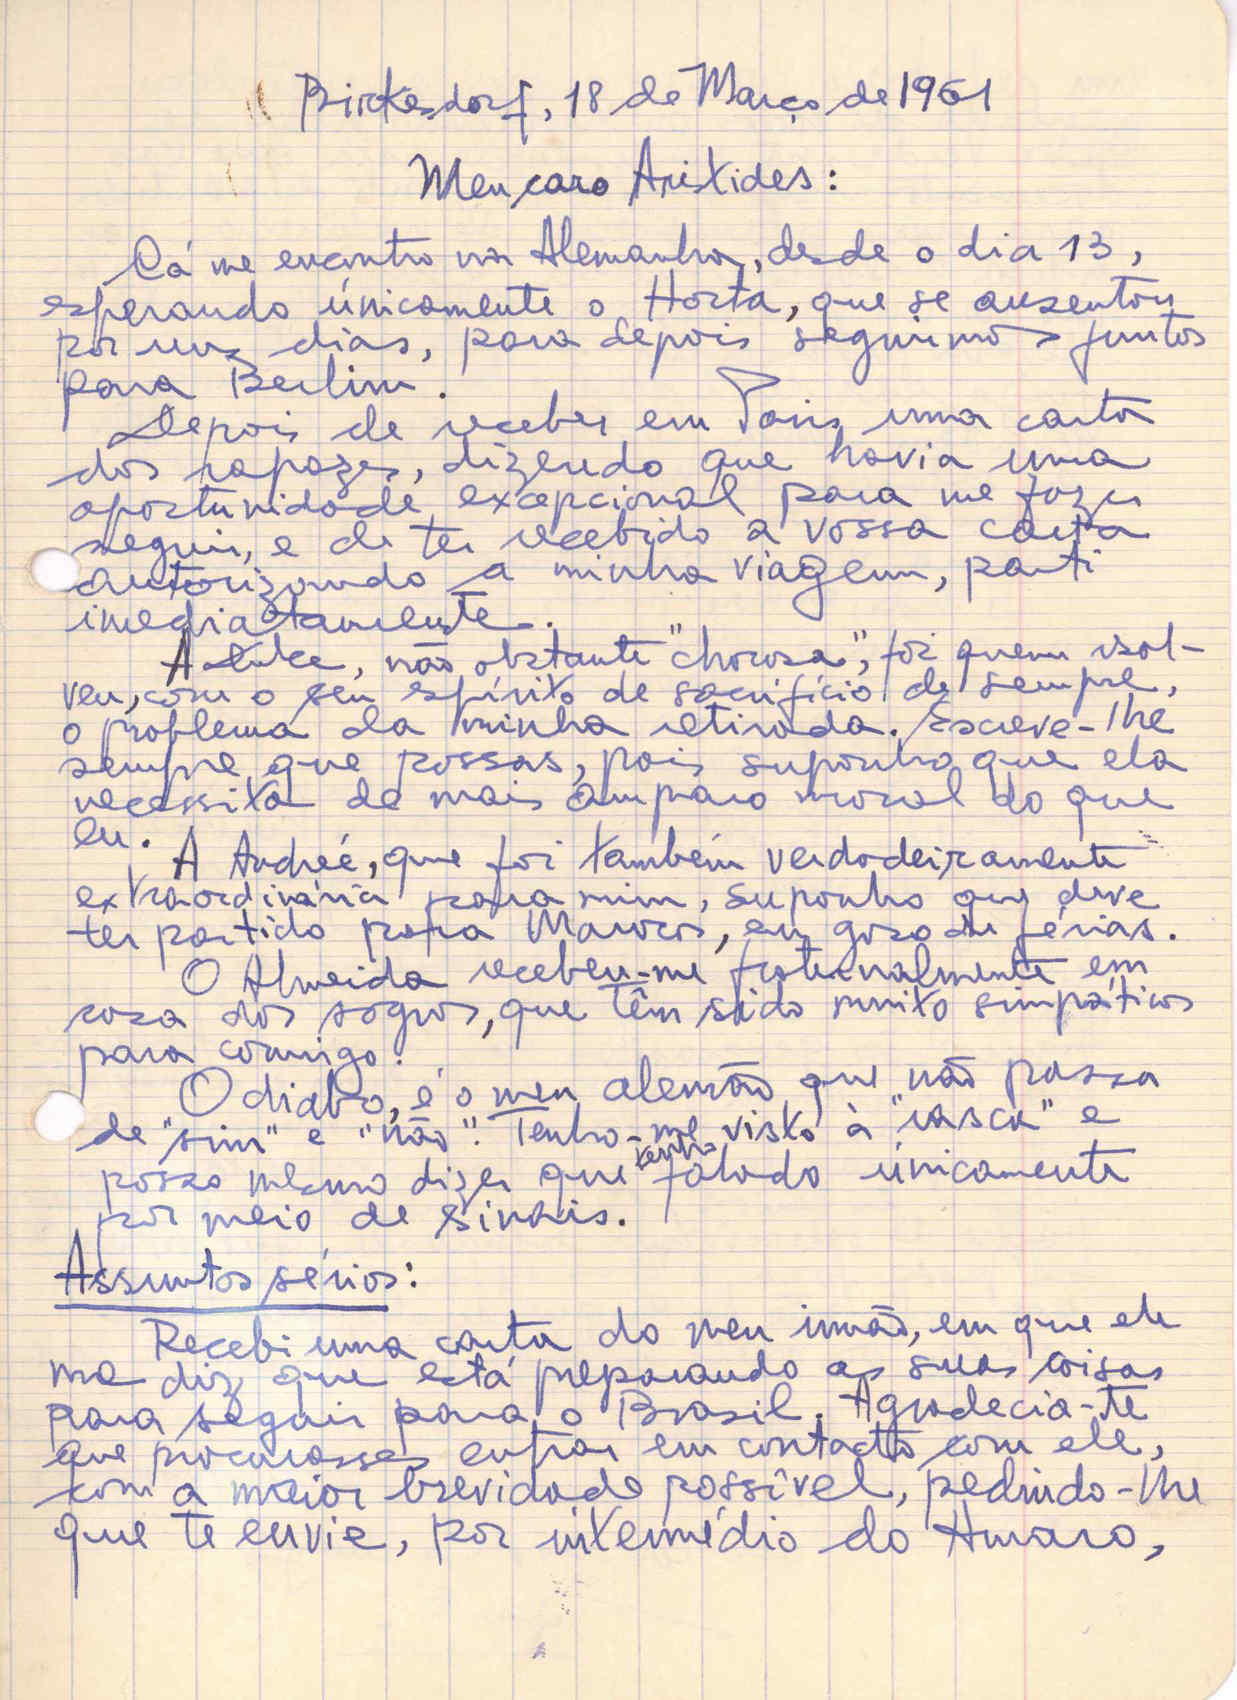 Birkesdorf, 18 de Março de 1961
Meu caro Aristides:
Cá me encontro na Alemanha, desde o dia 13,
esperando únicamente o Horta, que se ausentou
por uns dias, para depois seguirmos juntos
para Berlim.
Depois de receber em Paris uma carta
dos rapazes, dizendo que havia uma
oportunidade excepcional para me fazer
seguir, e de ter recebido a vossa carta
autorizando a minha viagem, parti
imediatamente.
A Dulce, não obstante "chorosa", foi quem resol-
veu, com o seu espírito de sacrifício de sempre,
o problema da minha retirada. Escreve-lhe
sempre que possas, pois suponho que ela
necessita de mais amparo moral do que
eu.
A Andreé, que foi também verdadeiramente
extraordinária para mim, suponho que deve
ter partido para Marrocos, em gozo de férias.
O Almeida recebeu-me fraternalmente em
casa dos sogros, que têm sido muito simpáticos
para comigo.
O diabo, é o meu alemão que não passa
de "sim" e "não". Tenho-me visto à "rasca" e
posso mesmo dizer que tenho falado únicamente
por meio de sinais.
Assuntos sérios:
Recebi uma carta do meu irmão, em que ele
me diz que está preparando as suas coisas
para seguir para o Brasil. Agradecia-te
que procurasses entrar em contacto com ele,
com a maior brevidade possível, pedindo-lhe
que te envie, por intermédio do Amaro,